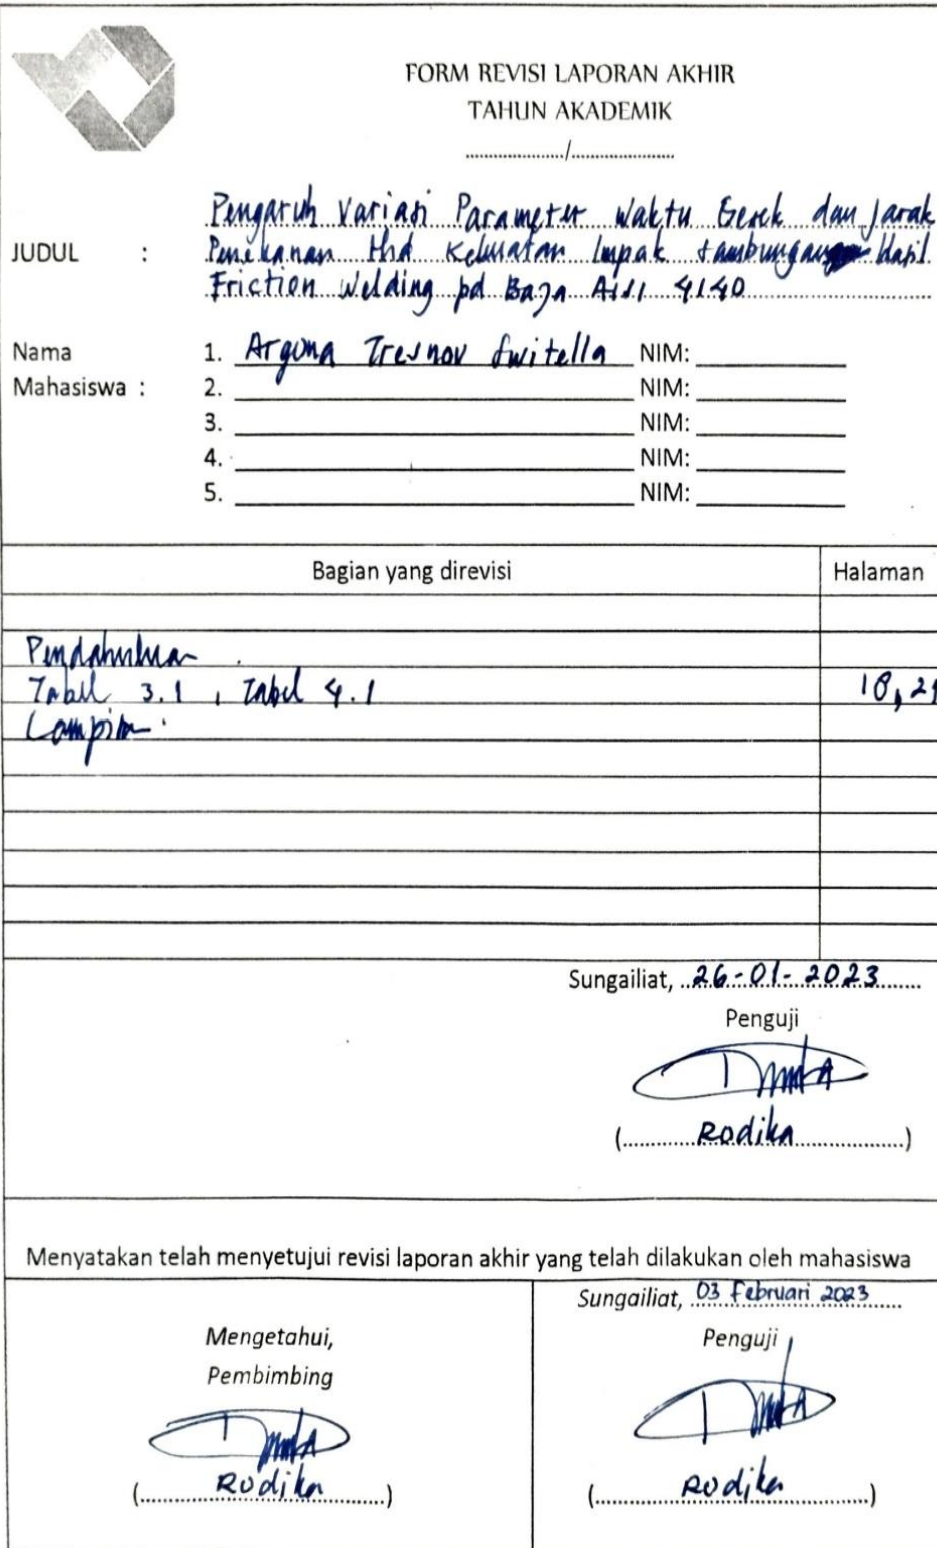 FORM REVISI LAPORAN AKHIR
TAHUN AKADEMIK
...................../......................
Pengaruh Variasi Parameter Waktu Gesek dan Jarak
JUDUL : Penekanan thd Kekuatan Impak sambungan Hasil
Friction Welding pd Baja AISI 4140
Nama 1. Arguna Tresnov Switella NIM:
Mahasiswa : 2. NIM:
3. NIM:
4. NIM:
5. NIM:
Bagian yang direvisi Halaman
Pendahuluan
Tabel 3.1 , Tabel 4.1 18, 29
Lampiran
Sungailiat, 26-01-2023
Penguji
(Rodika)
Menyatakan telah menyetujui revisi laporan akhir yang telah dilakukan oleh mahasiswa
Sungailiat, 03 Februari 2023
Mengetahui, Penguji
Pembimbing
(Rodika) (Rodika)